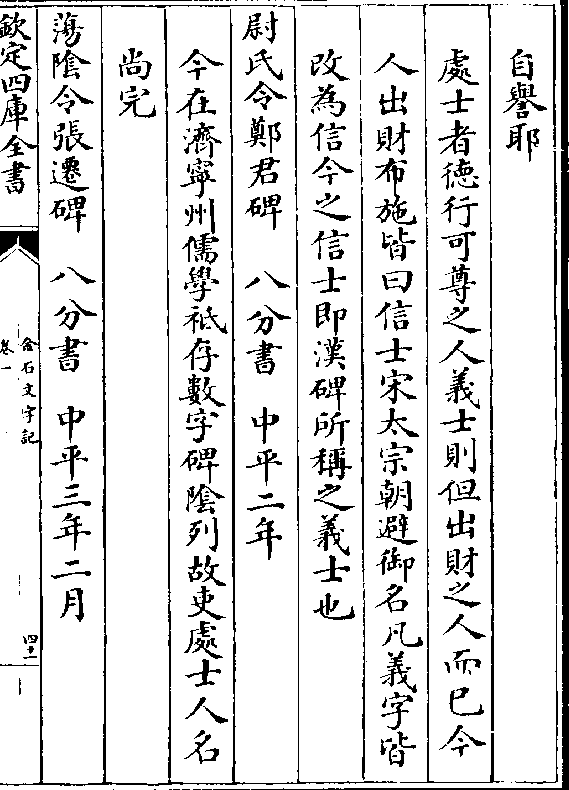 自譽耶
處士者德行可尊之人義士則但出財之人而已今
人出財布施皆曰信士宋太宗朝避御名凡義字皆
改為信今之信士即漢碑所稱之義士也
尉氏令鄭君碑　八分書　中平二年
今在濟寧州儒學祗存數字碑陰列故吏處士人名
尚完
蕩陰令張遷碑　八分書　中平三年二月
欽定四庫全書
金石文字記
卷一
四十一